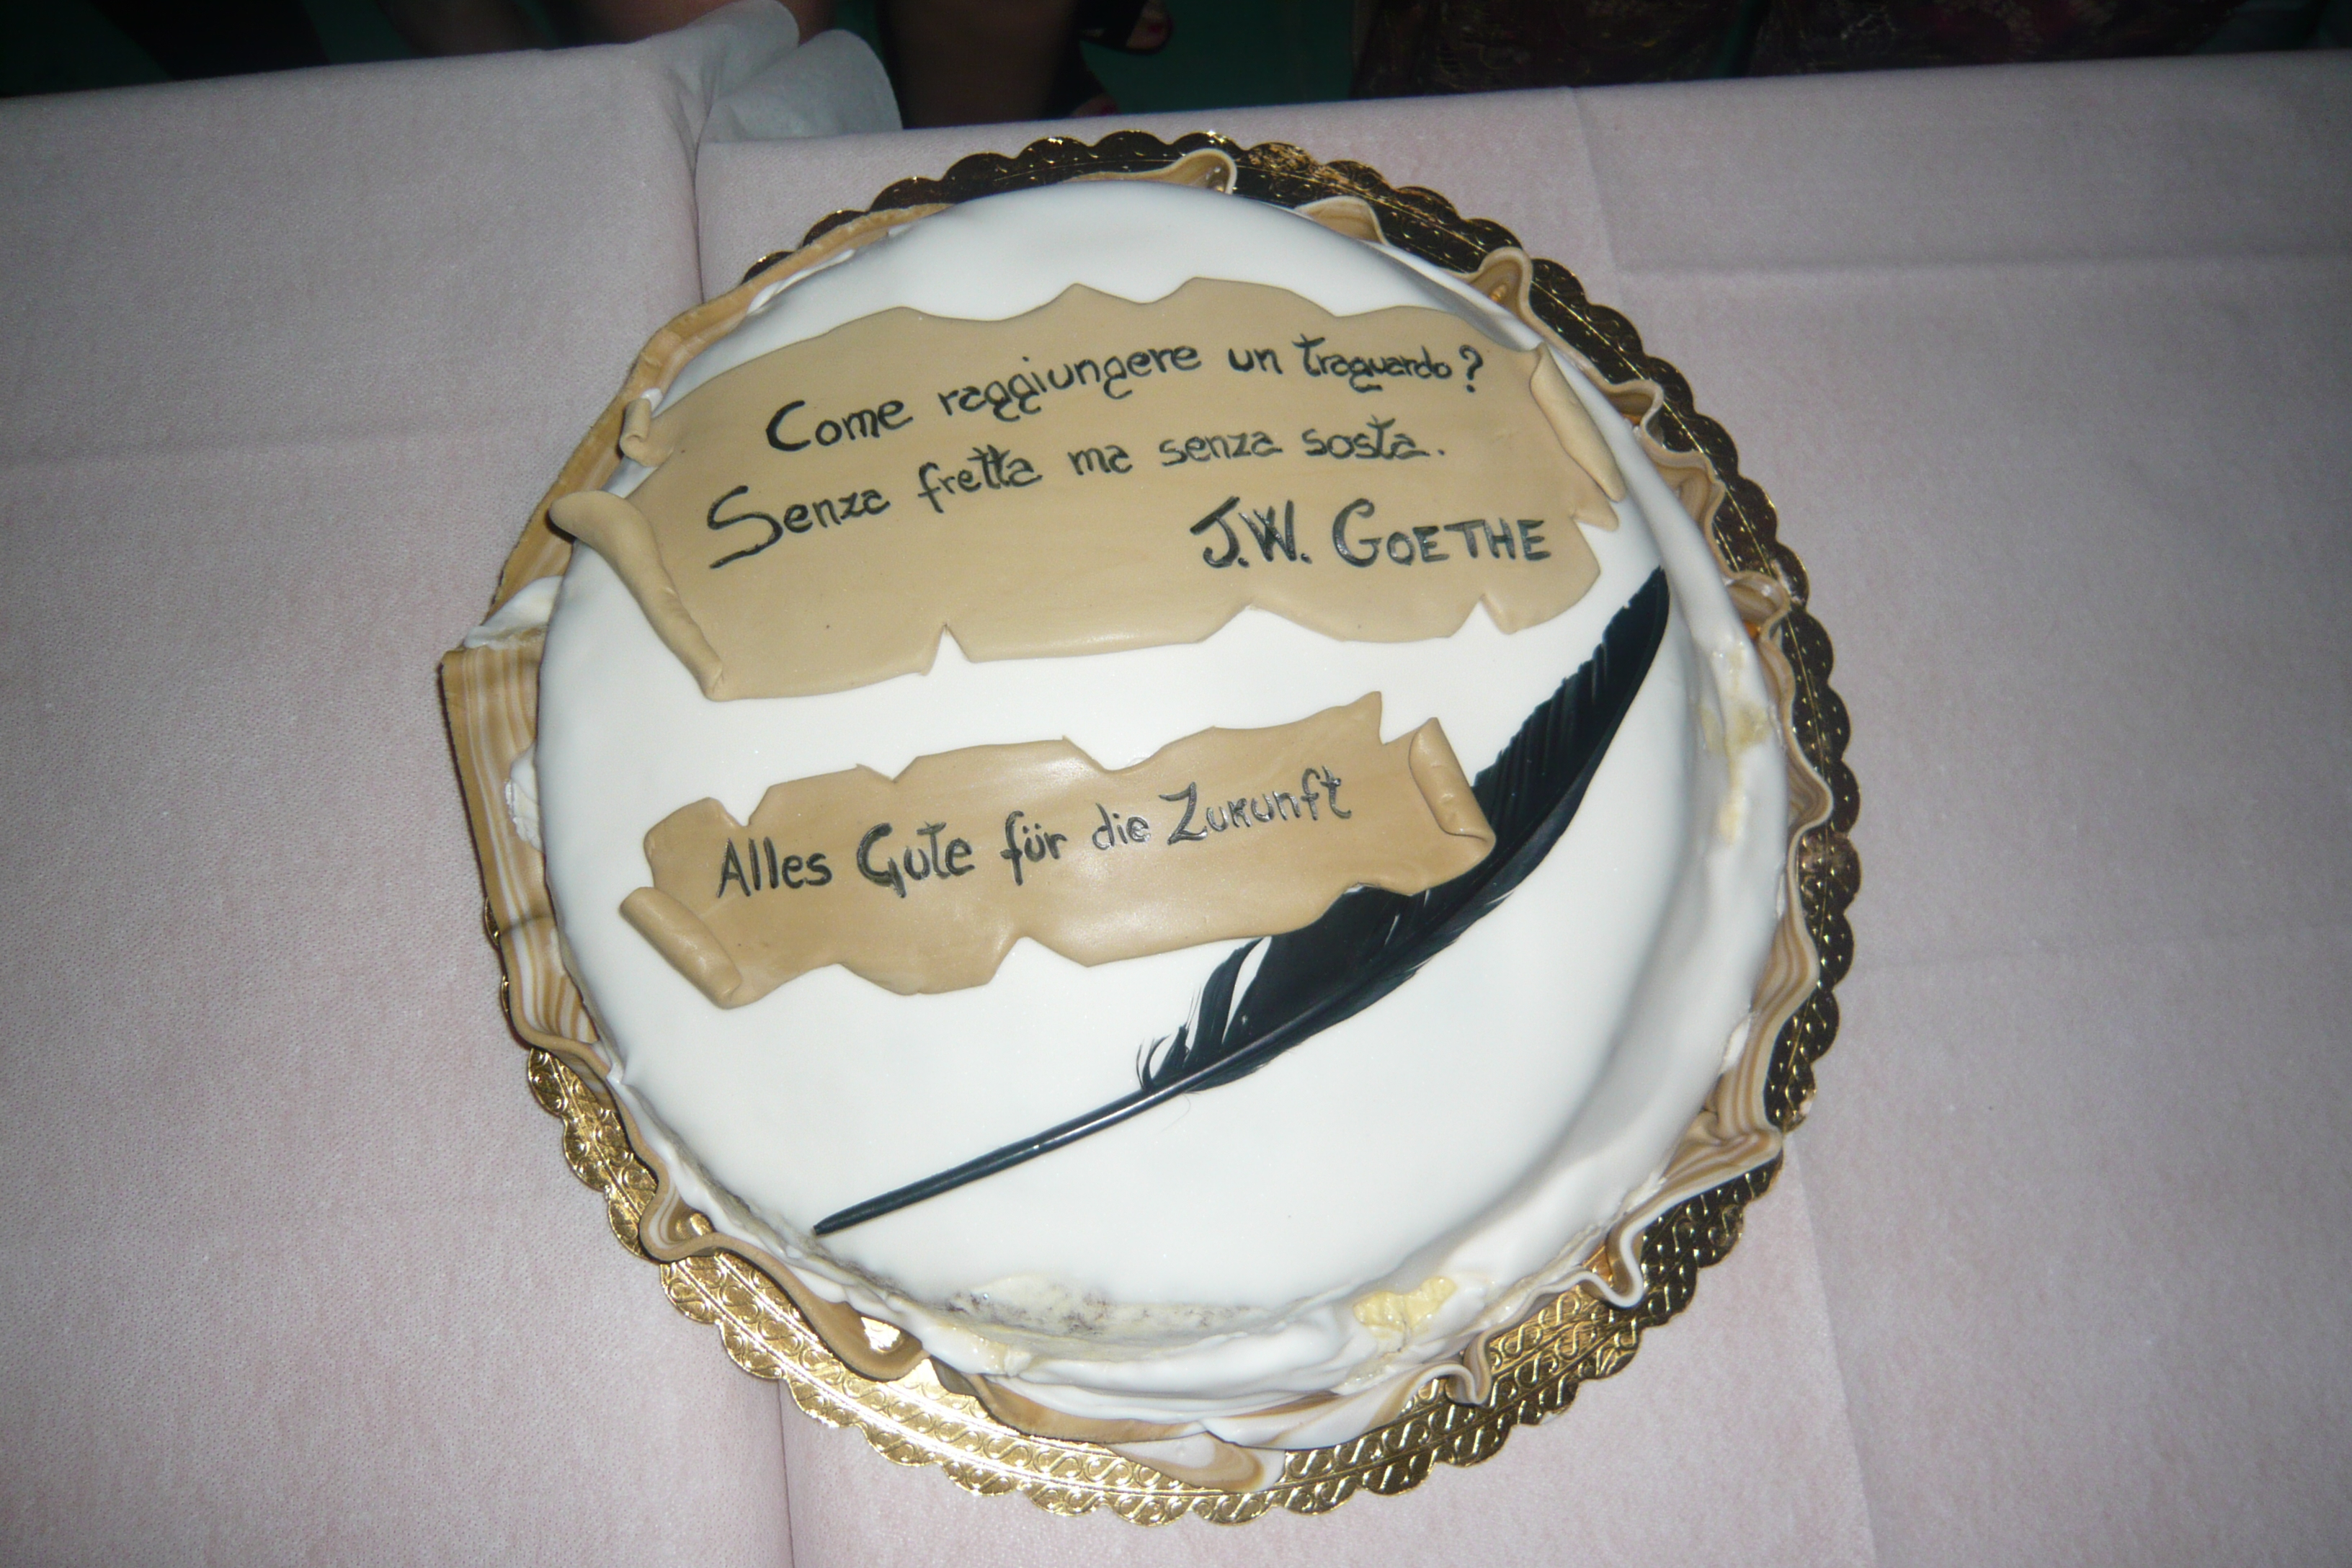 Come raggiungere un traguardo?
Senza fretta ma senza sosta.
J.W. GOETHE
Alles Gute für die Zukunft